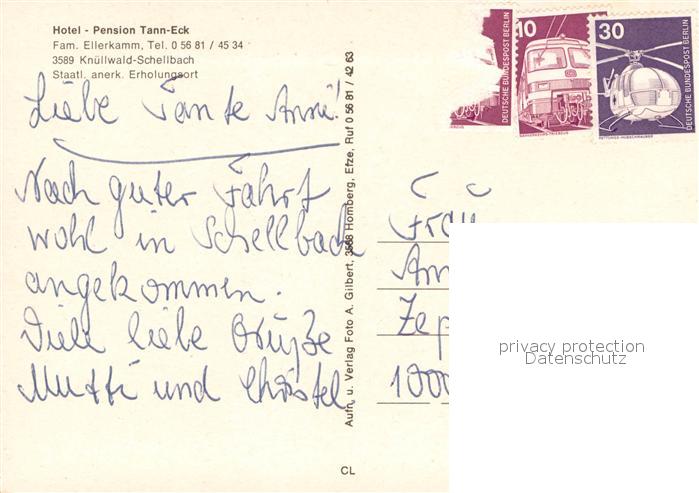 Hotel - Pension Tann-Eck
Fam. Ellerkamm, Tel. 0 56 81 / 45 34
3589 Knüllwald-Schellbach
Staatl. anerk. Erholungsort
Liebe Tante Anni!
Nach guter Fahrt
wohl in Schellbach
angekommen.
Viele liebe Grüße
Mutti und Christel
Aufn. u. Verlag Foto A. Gilbert, 3588 Homberg, Efze, Ruf 0 56 81 / 42 63
CL
10
DEUTSCHE BUNDESPOST BERLIN
30
DEUTSCHE BUNDESPOST BERLIN
RETTUNGS-HUBSCHRAUBER
Frau
An
Zep
1000
privacy protection
Datenschutz